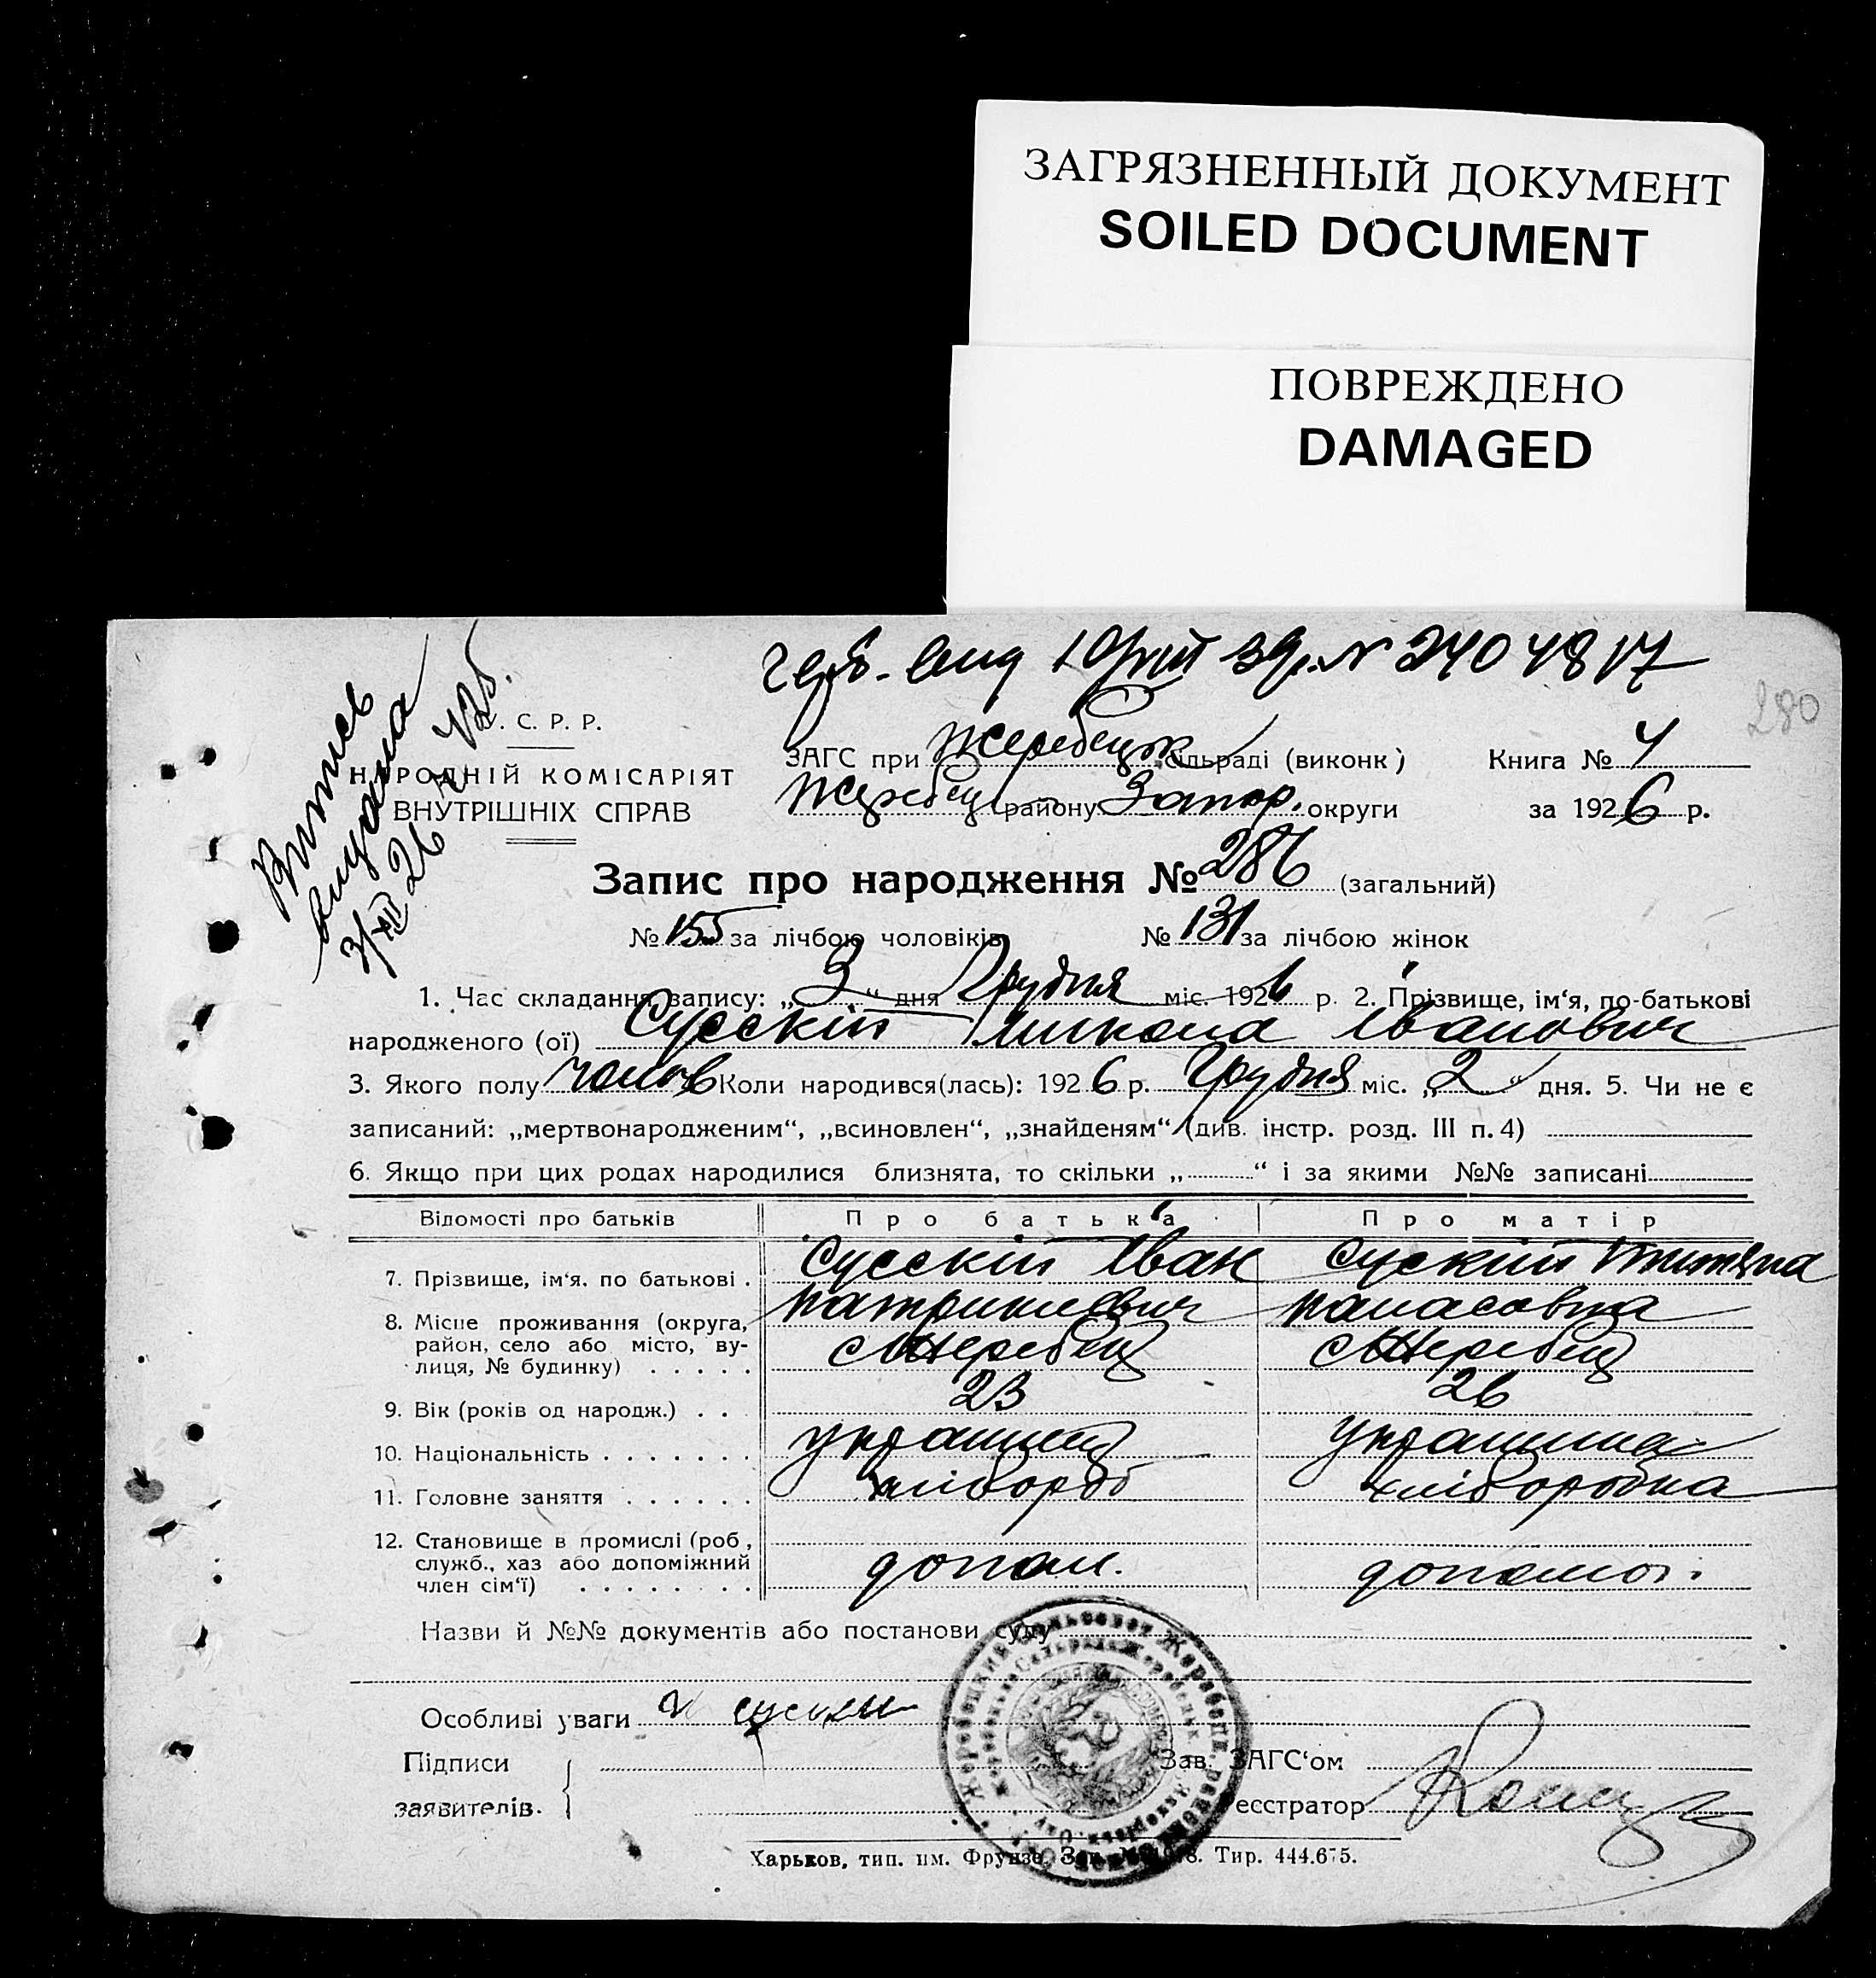 ЗАГРЯЗНЕННЫЙ ДОКУМЕНТ
SOILED DOCUMENT
ПОВРЕЖДЕНО
DAMAGED
N 2404817
280
У. С. Р. Р.
НАРОДНІЙ КОМІСАРІЯТ
ВНУТРІШНІХ СПРАВ
Витяг
видана
3/XII 26 р.
ЗАГС при Жеребецьк сільраді (виконк)
Книга № 4
Жеребец району Запор. округи
за 1926 р.
Запис про народження № 286 (загальний)
№ 155 за лічбою чоловіків № 131 за лічбою жінок
1. Час складання запису: „3“ дня Грудня міс. 1926 р. 2. Прізвище, ім‘я, по-батькові
народженого (ої) Сусскій Микола Іванович
3. Якого полу чолов Коли народився(лась): 1926 р. Грудня міс. „2“ дня. 5. Чи не є
записаний: „мертвонародженим“, „всиновлен“, „знайденям“ (див. інстр. розд. III п. 4)
6. Якщо при цих родах народилися близнята, то скільки „ “ і за якими №№ записані
Відомості про батьків Про батька Про матір
7. Прізвище, ім‘я, по батькові . Сусскій Іван Сускій Титяна
Панасовна
8. Місце проживання (округа,
район, село або місто, ву-
лиця, № будинку) . . . . . с Жеребец с Жеребец
9. Вік (років од народж.) . . 23 26
10. Національність . . . . . . . українец українка
11. Головне заняття . . . . . . хлібороб хліборобка
12. Становище в промислі (роб.,
служб., хаз або допоміжний
член сім‘ї) . . . . . . . . допом. допомог.
Назви й №№ документів або постанови суду
Особливі уваги
Підписи
заявителів.
Зав. ЗАГС‘ом
Реєстратор
Харьков, тип. им. Фрунзе. Тир. 444.675.